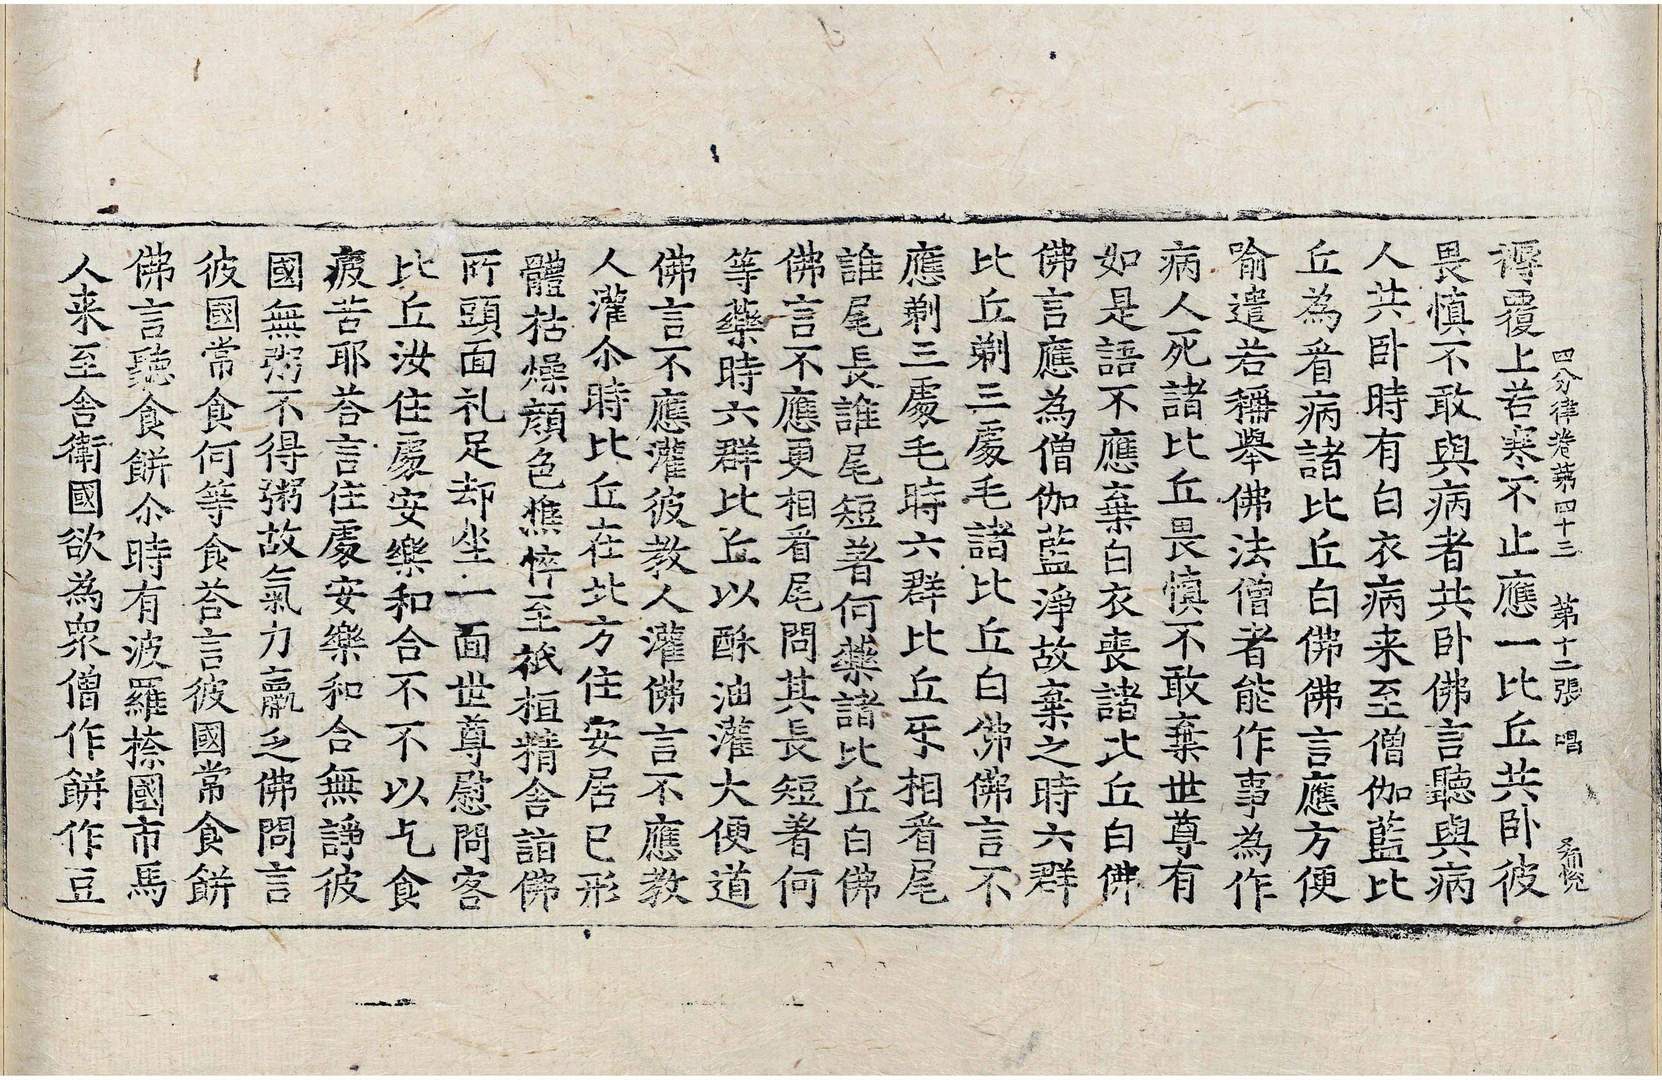 四分律卷第四十三　第十二張　唱
褥覆上若寒不止應一比丘共卧彼
畏慎不敢與病者共卧佛言聽與病
人共卧時有白衣病来至僧伽藍比
丘為看病諸比丘白佛佛言應方便
喻遣若稱舉佛法僧者能作事為作
病人死諸比丘畏慎不敢棄世尊有
如是語不應棄白衣喪諸比丘白佛
佛言應為僧伽藍淨故棄之時六群
比丘剃三處毛諸比丘白佛佛言不
應剃三處毛時六群比丘牙相看尾
誰尾長誰尾短著何藥諸比丘白佛
佛言不應更相看尾問其長短著何
等藥時六群比丘以酥油灌大便道
佛言不應灌彼教人灌佛言不應教
人灌尒時比丘在北方住安居已形
體枯燥顏色憔悴至祇桓精舍詣佛
所頭面礼足却坐一面世尊慰問客
比丘汝住處安樂和合不不以乞食
疲苦耶荅言住處安樂和合無諍彼
國無粥不得粥故氣力羸乏佛問言
彼國常食何等食荅言彼國常食餅
佛言聽食餅尒時有波羅㮈國市馬
人来至舍衛國欲為眾僧作餅作豆